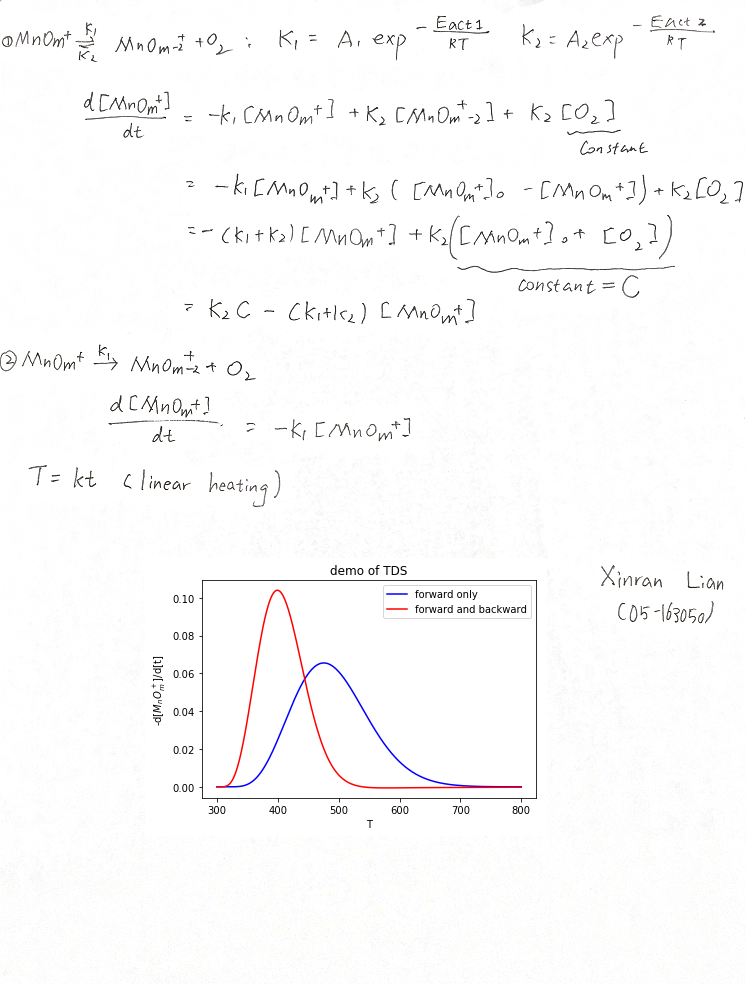 ① MnOm⁺ ⇌ MnOm-2⁺ + O₂ : K₁ = A₁ exp - Eact1/RT K₂ = A₂ exp - Eact2/RT
K₁
K₂
d[MnOm⁺]/dt = -k₁[MnOm⁺] + K₂[MnOm-2⁺] + K₂[O₂]
Constant
= -k₁[MnOm⁺] + k₂([MnOm⁺]₀ - [MnOm⁺]) + K₂[O₂]
= -(k₁+k₂)[MnOm⁺] + K₂([MnOm⁺]₀ + [O₂])
constant = C
= K₂C - (k₁+k₂)[MnOm⁺]
② MnOm⁺ →(k₁) MnOm-2⁺ + O₂
d[MnOm⁺]/dt = -K₁[MnOm⁺]
T = kt (linear heating)
demo of TDS
forward only
forward and backward
-d[MnOm⁺]/d[t]
0.10
0.08
0.06
0.04
0.02
0.00
300 400 500 600 700 800
T
Xinran Lian
(05-163050)